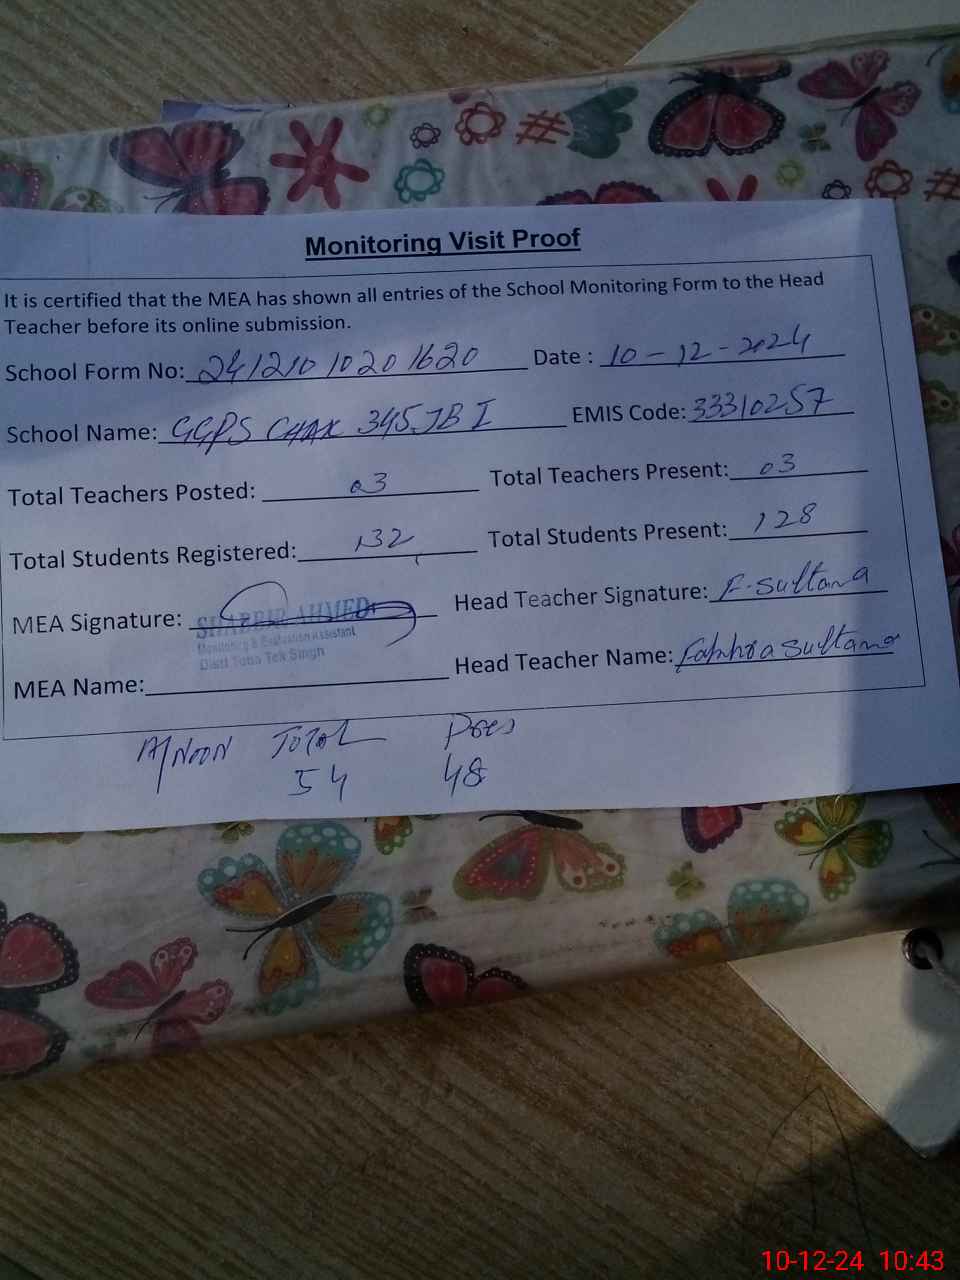 Monitoring Visit Proof
It is certified that the MEA has shown all entries of the School Monitoring Form to the Head
Teacher before its online submission.
School Form No: 24121010201620 Date : 10-12-2024
School Name: GGPS CHAK 345JB I EMIS Code: 33310257
Total Teachers Posted: 03 Total Teachers Present: 03
Total Students Registered: 132 Total Students Present: 128
MEA Signature: Head Teacher Signature: F. Sultana
SHABBIR AHMED
Monitoring & Evaluation Assistant
Distt Toba Tek Singh
MEA Name: Head Teacher Name: Sultana
A/NOON TOTAL Pres
54 48
10-12-24 10:43